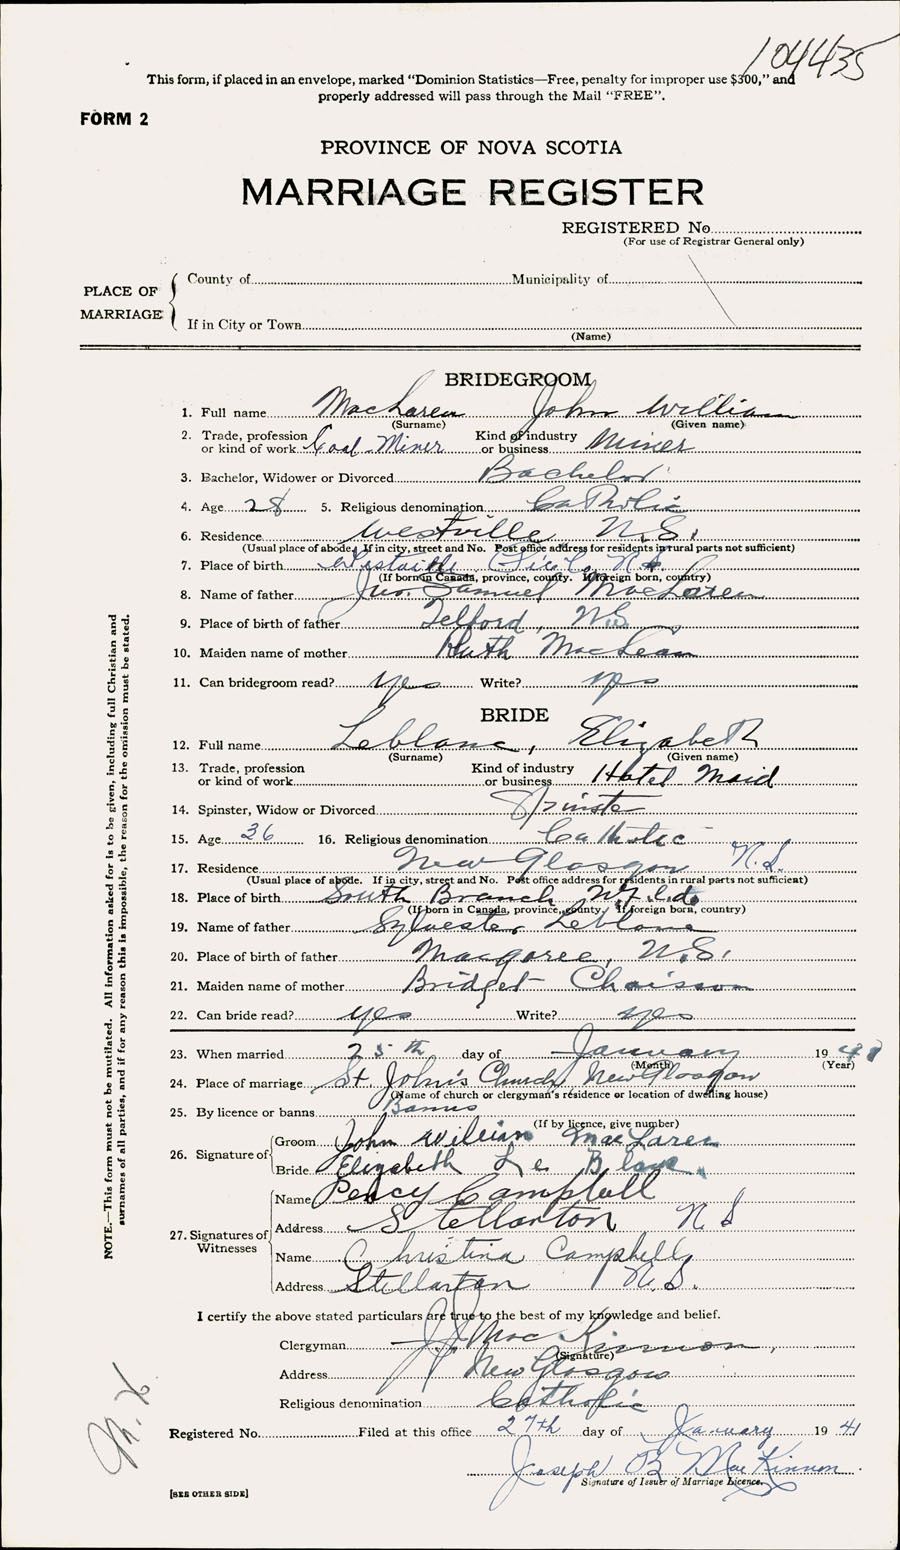 104435
This form, if placed in an envelope, marked “Dominion Statistics—Free, penalty for improper use $300,” and
properly addressed will pass through the Mail “FREE”.
FORM 2
PROVINCE OF NOVA SCOTIA
MARRIAGE REGISTER
REGISTERED No
(For use of Registrar General only)
PLACE OF MARRIAGE
County of Municipality of
If in City or Town
(Name)
BRIDEGROOM
1. Full name MacLaren John William
(Surname) (Given name)
2. Trade, profession or kind of work Coal Miner Kind of industry or business Miner
3. Bachelor, Widower or Divorced Bachelor
4. Age 28 5. Religious denomination Catholic
6. Residence Westville N.S.
(Usual place of abode. If in city, street and No. Post office address for residents in rural parts not sufficient)
7. Place of birth Westville
(If born in Canada, province, county. If foreign born, country)
8. Name of father Jno. Samuel MacLaren
9. Place of birth of father Telford, N.S.
10. Maiden name of mother Ruth MacLean
11. Can bridegroom read? yes Write? yes
BRIDE
12. Full name Leblanc, Elizabeth
(Surname) (Given name)
13. Trade, profession or kind of work Kind of industry or business Hotel Maid
14. Spinster, Widow or Divorced Spinster
15. Age 26 16. Religious denomination Catholic
17. Residence New Glasgow N.S.
(Usual place of abode. If in city, street and No. Post office address for residents in rural parts not sufficient)
18. Place of birth South Branch Nfld.
(If born in Canada, province, county. If foreign born, country)
19. Name of father Sylvester Leblanc
20. Place of birth of father Margaree, N.S.
21. Maiden name of mother Bridget Chaisson
22. Can bride read? yes Write? yes
23. When married 25th day of January 19
(Month) (Year)
24. Place of marriage St. John's Church New Glasgow
(Name of church or clergyman's residence or location of dwelling house)
25. By licence or banns Banns
(If by licence, give number)
26. Signature of
Groom John William MacLaren
Bride Elizabeth Le Blanc
27. Signatures of Witnesses
Name Percy Campbell
Address Stellarton N S
Name Christina Campbell
Address Stellarton N.S.
I certify the above stated particulars are true to the best of my knowledge and belief.
Clergyman J. J. MacKinnon
(Signature)
Address New Glasgow
Religious denomination Catholic
Registered No. Filed at this office 27th day of January 19 41
Joseph B MacKinnon
Signature of Issuer of Marriage Licence.
[SEE OTHER SIDE]
NOTE.—This form must not be mutilated. All information asked for is to be given, including full Christian and
surnames of all parties, and if for any reason this is impossible, the reason for the omission must be stated.